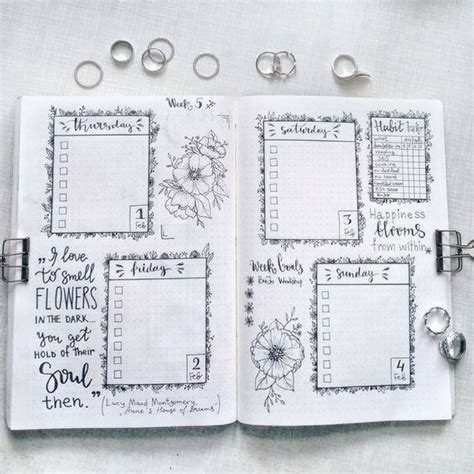 Week 5
thursday
1
Feb
„I love
to smell
FLOWERS
IN THE DARK...
You get
HOLD OF THEIR
Soul
then."
(Lucy Maud Montgomery,
Anne's House of Dreams)
friday
2
Feb
saturday
3
Feb
Habit
reading
Happiness
blooms
from within
Week Goals
Workshop
sunday
4
Feb